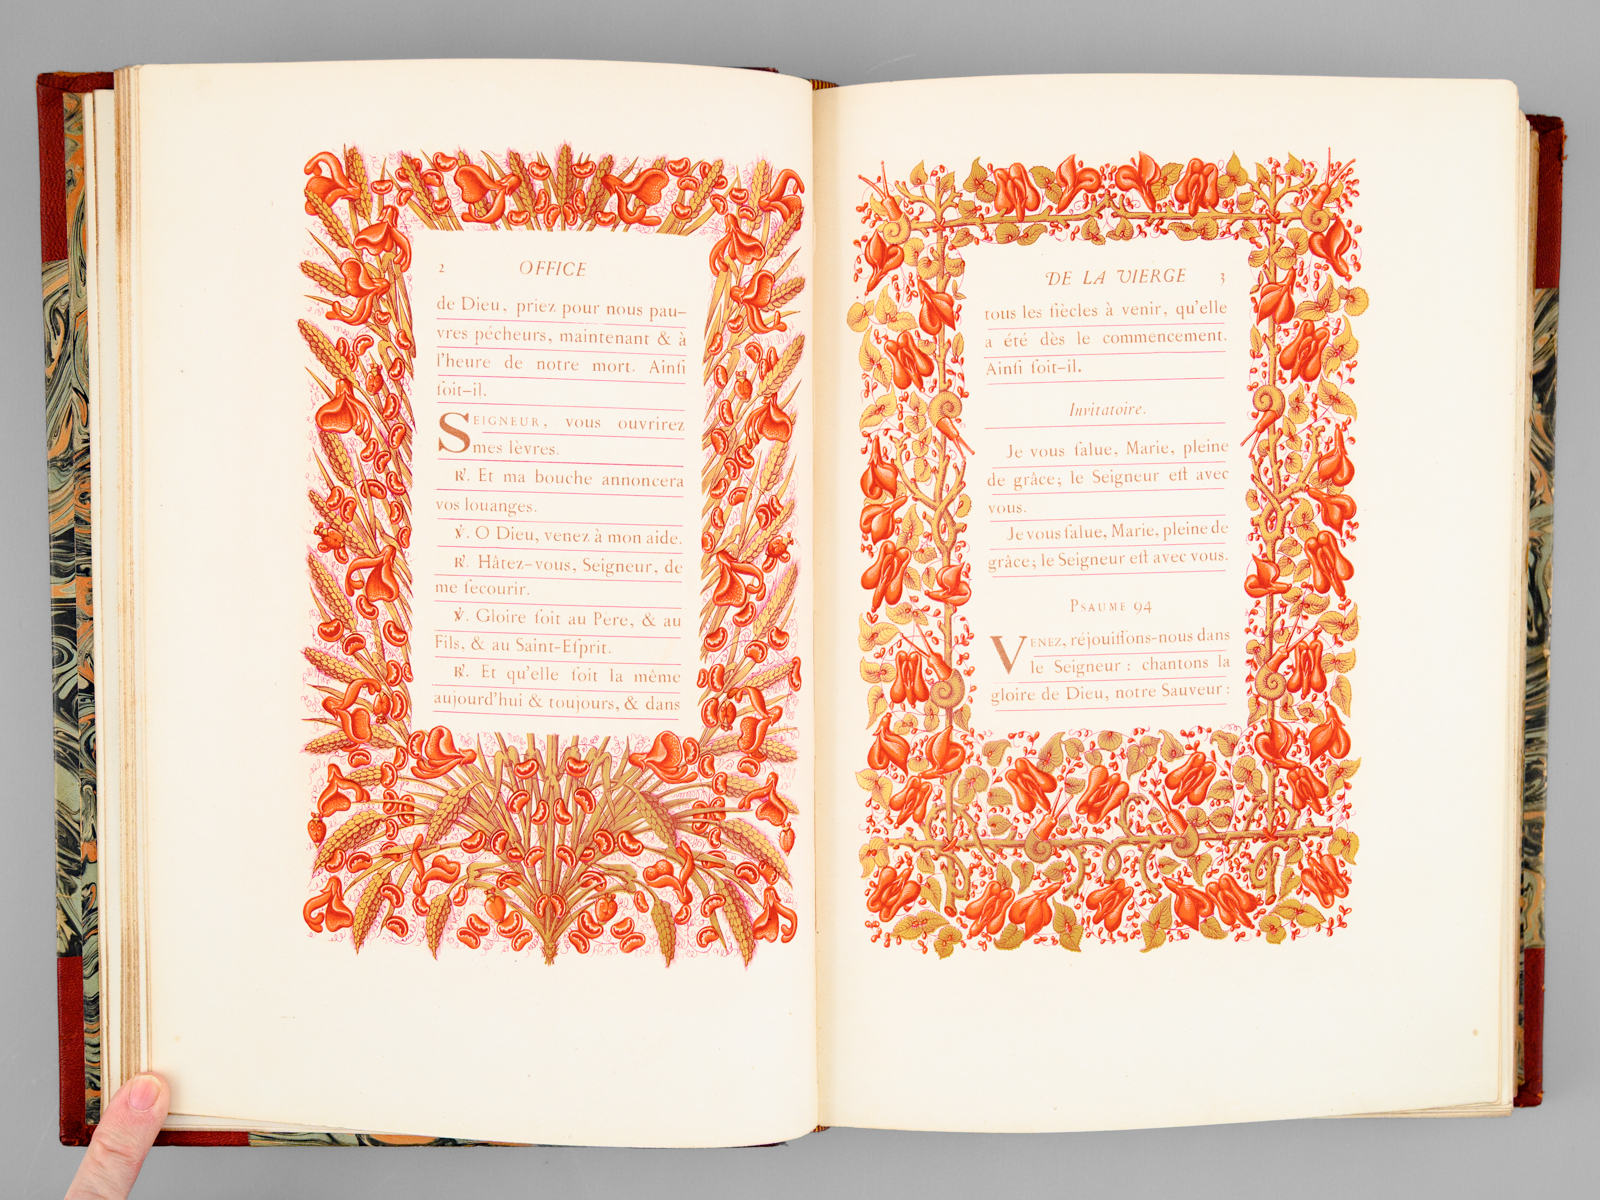 2 OFFICE
de Dieu, priez pour nous pau-
vres pécheurs, maintenant & à
l'heure de notre mort. Ainſi
ſoit-il.
SEIGNEUR, vous ouvrirez
mes lèvres.
℟. Et ma bouche annoncera
vos louanges.
℣. O Dieu, venez à mon aide.
℟. Hâtez-vous, Seigneur, de
me ſecourir.
℣. Gloire ſoit au Père, & au
Fils, & au Saint-Eſprit.
℟. Et qu'elle ſoit la même
aujourd'hui & toujours, & dans
DE LA VIERGE 3
tous les ſiècles à venir, qu'elle
a été dès le commencement.
Ainſi ſoit-il.
Invitatoire.
Je vous ſalue, Marie, pleine
de grâce; le Seigneur eſt avec
vous.
Je vous ſalue, Marie, pleine de
grâce; le Seigneur eſt avec vous.
PSAUME 94
VENEZ, réjouiſſons-nous dans
le Seigneur : chantons la
gloire de Dieu, notre Sauveur :